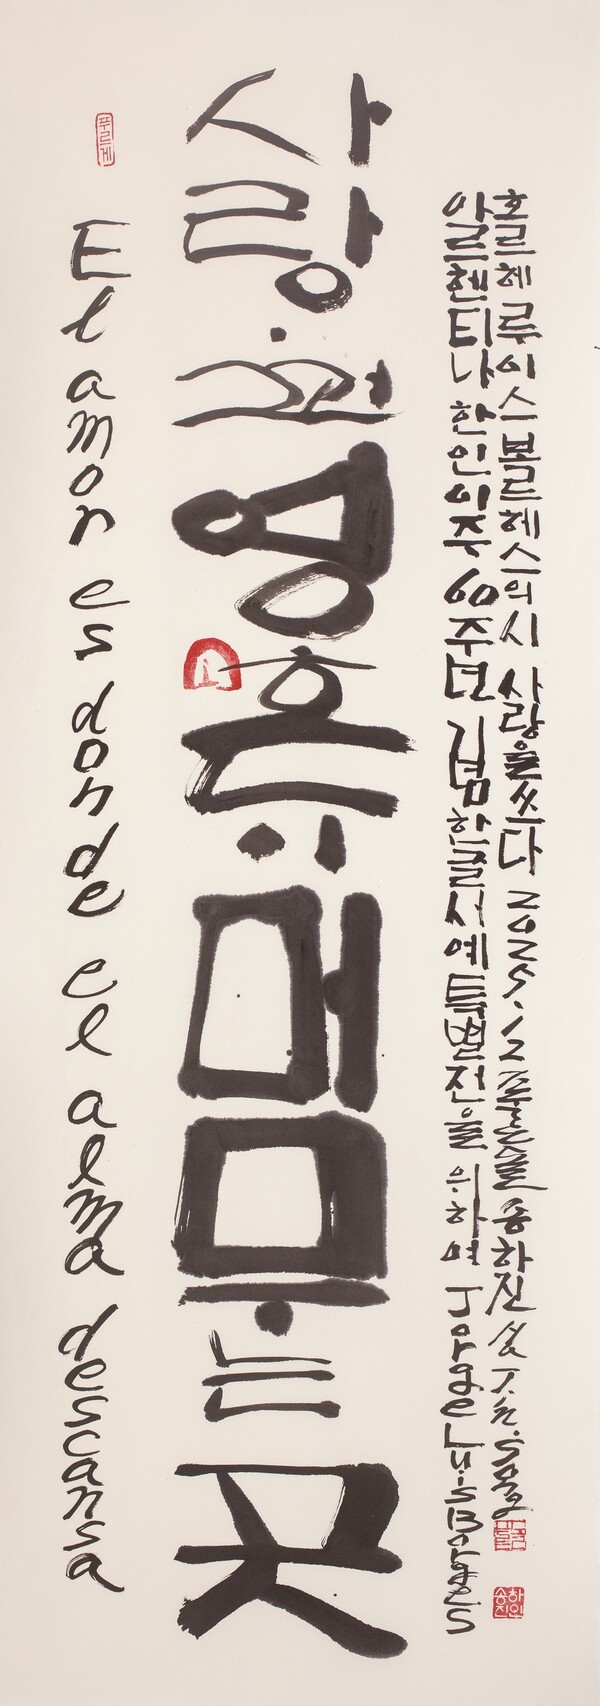 푸르게
El amor es donde el alma descansa
사랑 · 영혼이 머무는 곳
아르헨티나 한인이주 60주년 기념 한글서예특별전을 위하여 Jorge Luis Borges
호르헤 루이스 볼르헤스의 시 사랑을 쓰다 2025.12